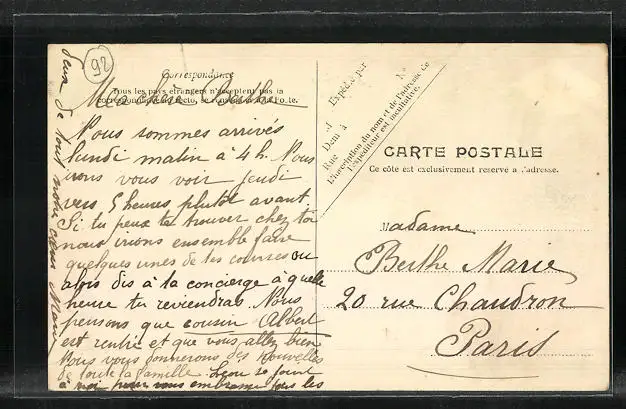 92
Correspondance
Tous les pays étrangers n'acceptent pas la
correspondance au recto, se renseigner à la Poste.
Ma chère Berthe
Nous sommes arrivés
lundi matin à 4 h. Nous
irons vous voir jeudi
vers 5 heures plutôt avant
Si tu peux te trouver chez toi
nous irions ensemble faire
quelques unes de tes courses ou
alors dis à la concierge à quelle
heure tu reviendras Nous
pensons que cousin Albert
est rentré et que vous allez bien
Nous vous donnerons des nouvelles
de toute la famille. Léon se joint
à moi pour vous embrasser tous les
deux de tout notre cœur Marie
Expédié par
M
Dem à
Rue
N°
L'inscription du nom et de l'adresse de
l'expéditeur est facultative.
CARTE POSTALE
Ce côté est exclusivement réservé à l'adresse.
Madame
Berthe Marie
20 rue Chaudron
Paris